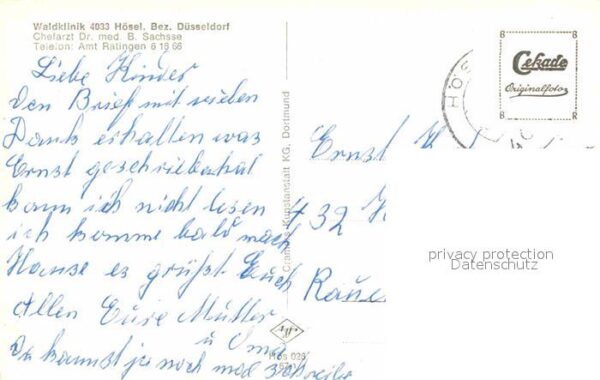 Waldklinik 4033 Hösel, Bez. Düsseldorf
Chefarzt Dr. med. B. Sachsse
Telefon: Amt Ratingen 6 18 66
Liebe Kinder
Den Brief mit vielen
Dank erhalten was
Ernst geschrieben hat
kann ich nicht lesen
ich komme bald nach
Hause es grüßt Euch
Allen Eure Mutter
u Oma
Du kannst ja noch mal
Kunstanstalt KG, Dortmund
HÖS
Cekade
Originalfoto
Ernst
432
privacy protection
Datenschutz